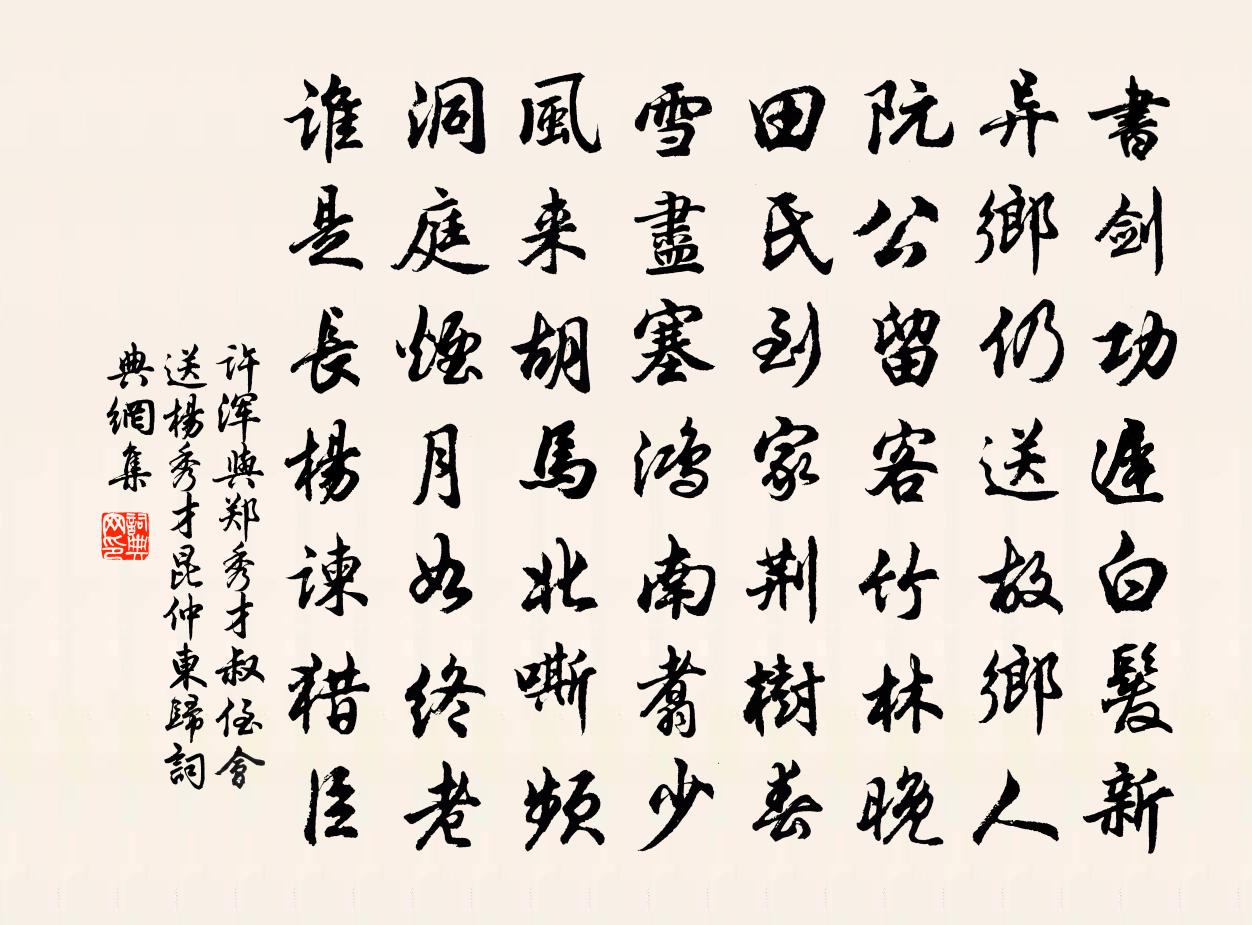 書劍功遲白髮新
异鄉仍送故鄉人
阮公留客竹林晚
田氏到家荆樹春
雪盡塞鴻南翥少
風来胡馬北嘶頻
洞庭煙月如終老
誰是長楊諫猎臣
许渾與郑秀才叔侄會
送楊秀才昆仲東歸詞
典網集
詞典
网印